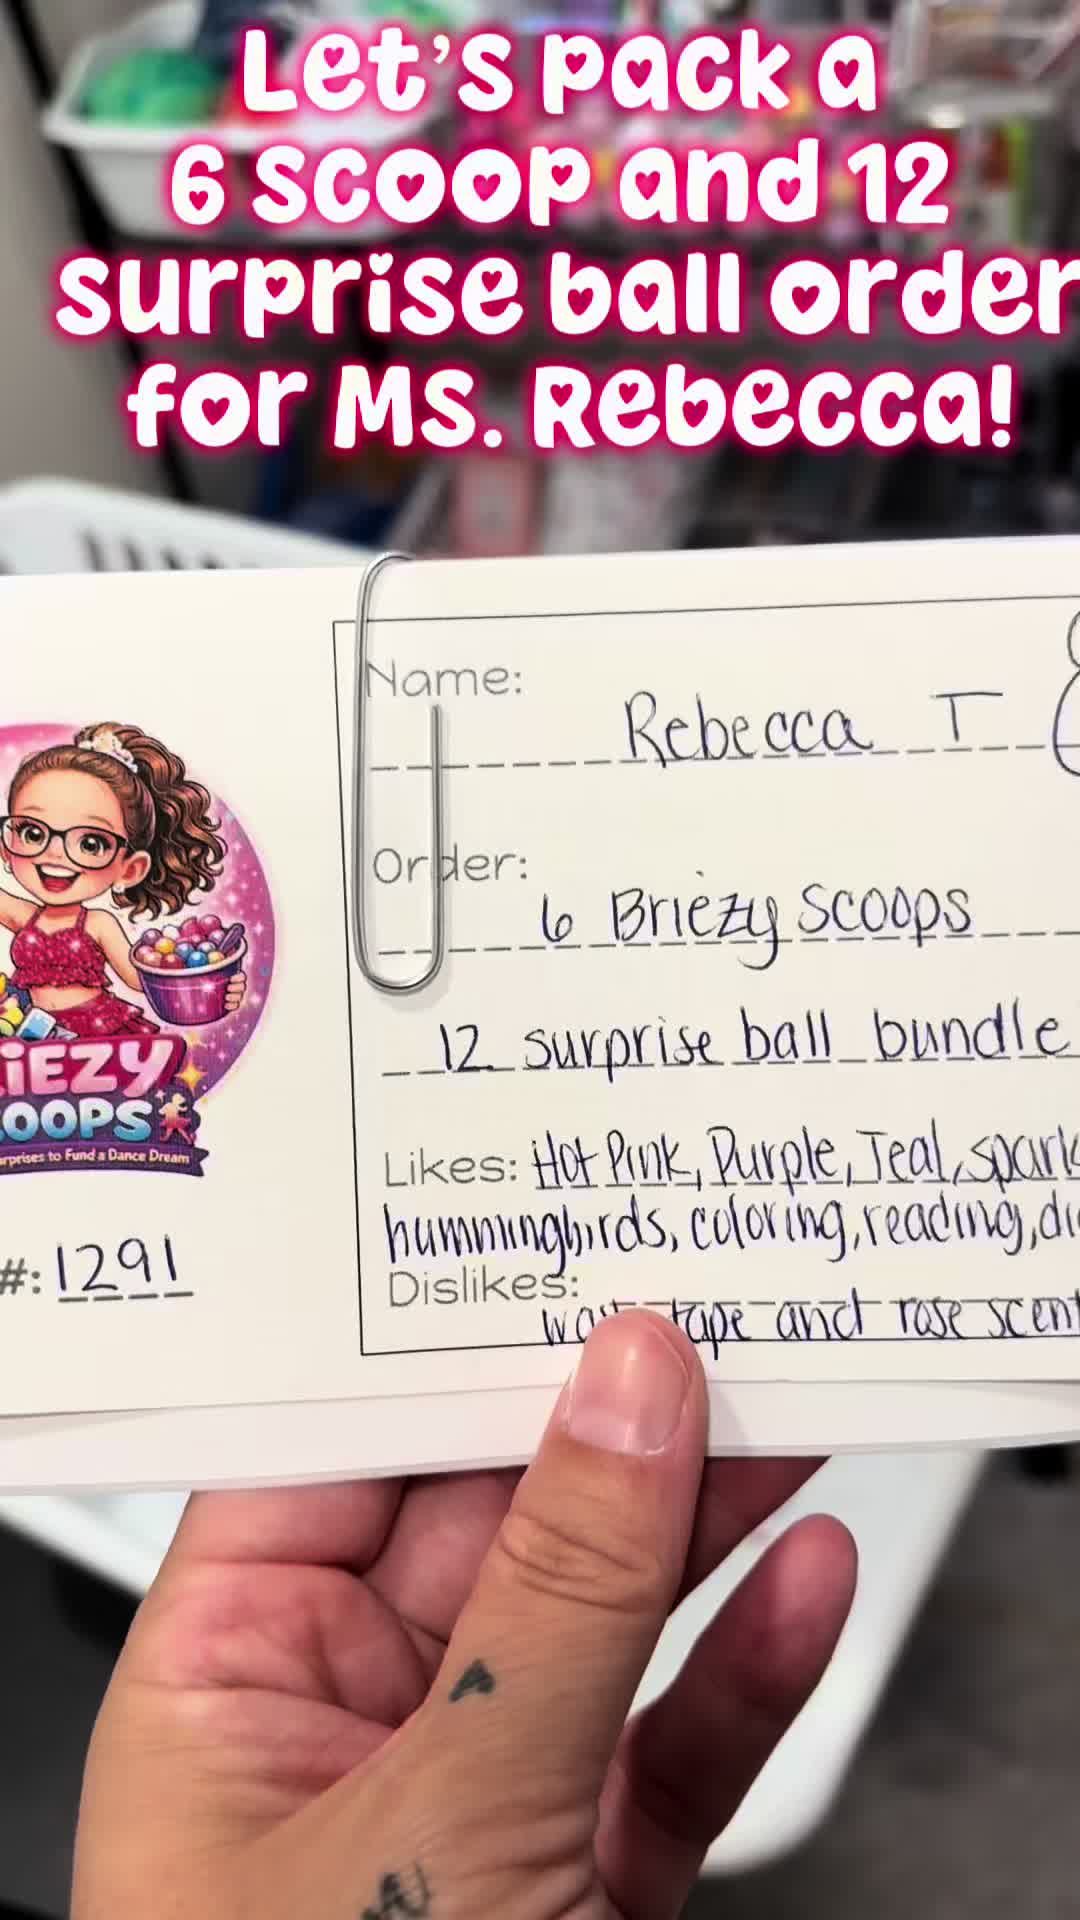 Let's pack a
6 scoop and 12
surprise ball order
for Ms. Rebecca!
Name:
Rebecca T
Order:
6 Briezy Scoops
12 surprise ball bundle
Likes: Hot Pink, Purple, Teal,
hummingbirds, coloring, reading,
Dislikes:
tape and rose
iEZY
OOPS
to Fund a Dance Dream
#: 1291